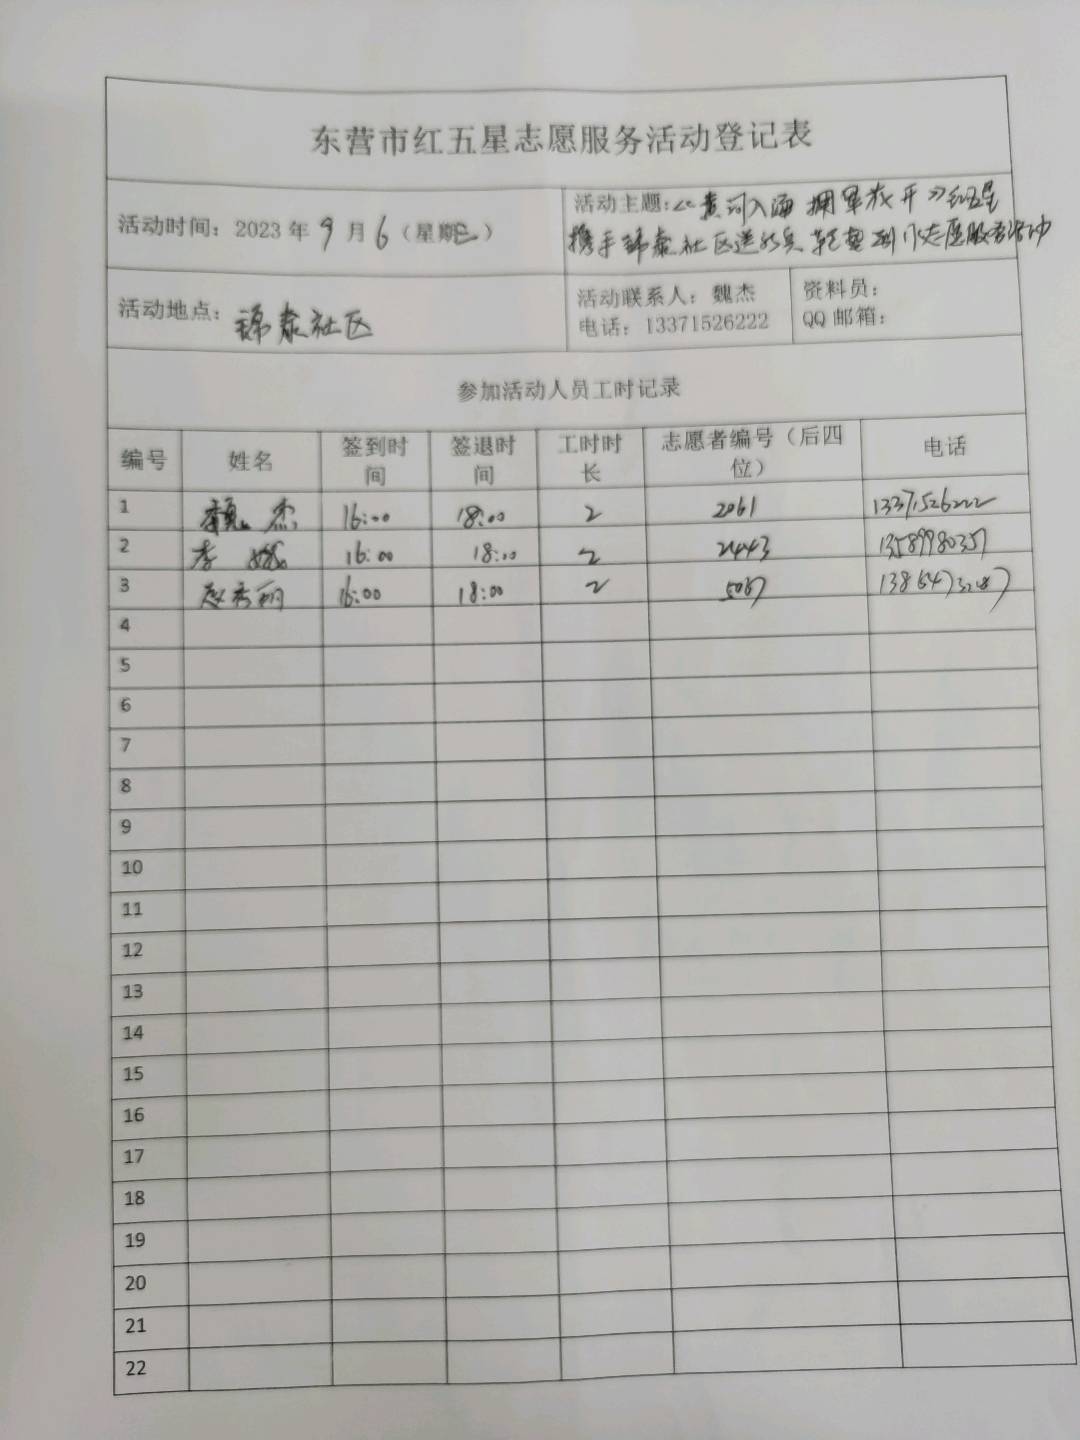 东营市红五星志愿服务活动登记表
活动时间：2023年9月6（星期三）
活动主题：《黄河入海 拥军花开》红五星
携手锦泰社区送新兵 志愿服务活动
活动地点：锦泰社区
活动联系人：魏杰
电话：13371526222
资料员：
QQ邮箱：
参加活动人员工时记录
编号 姓名 签到时间 签退时间 工时时长 志愿者编号（后四位） 电话
1 魏杰 16:00 18:00 2 2061 13371526222
2 李 16:00 18:00 2 2443 13589980357
3 16:00 18:00 2
4
5
6
7
8
9
10
11
12
13
14
15
16
17
18
19
20
21
22